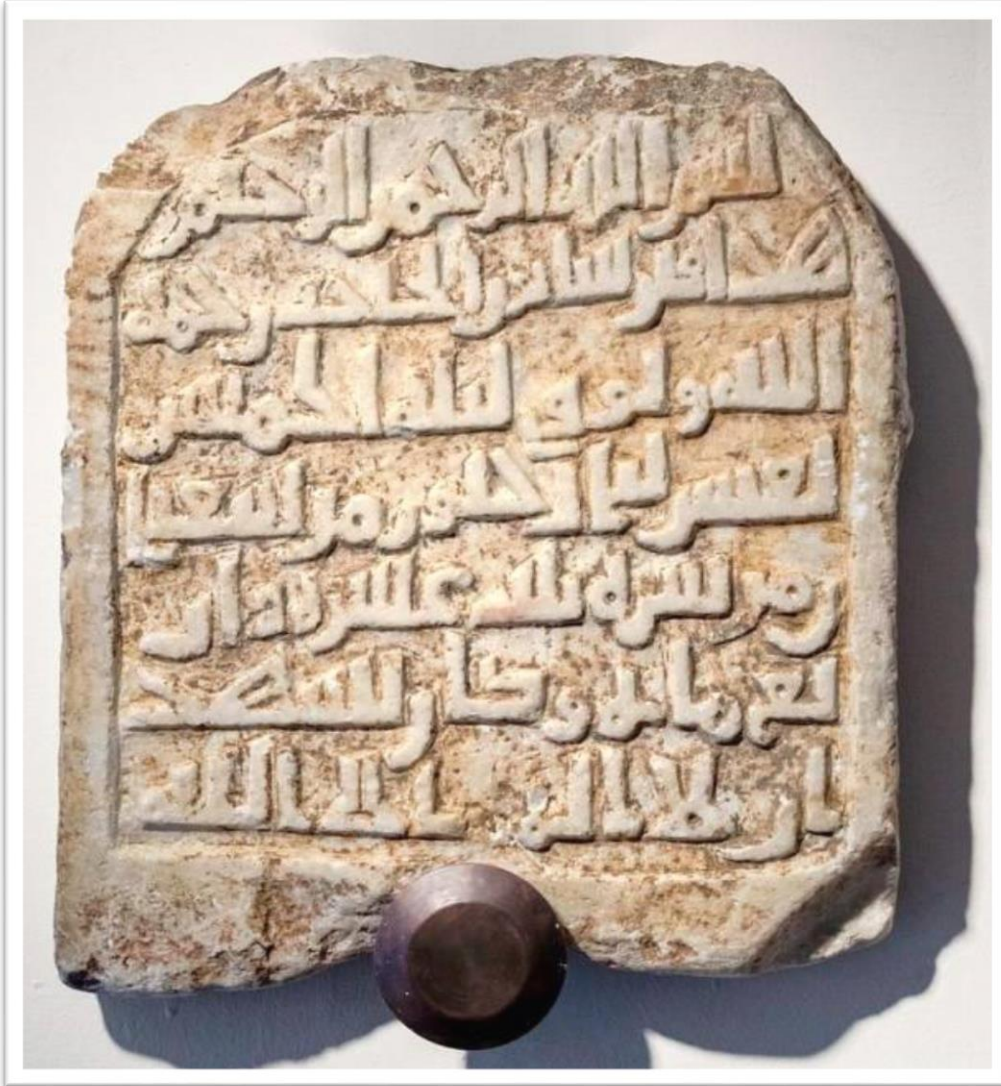 بسم الله الرحمن الرحيم
هذا قبر بن رحمه
الله وتوفي ليلة الخميس
لعشر ليال خلون من شعبا
ن من سنة ثلث عشرة وار
بع مائة وكان يشهد
ان لا اله الا الله